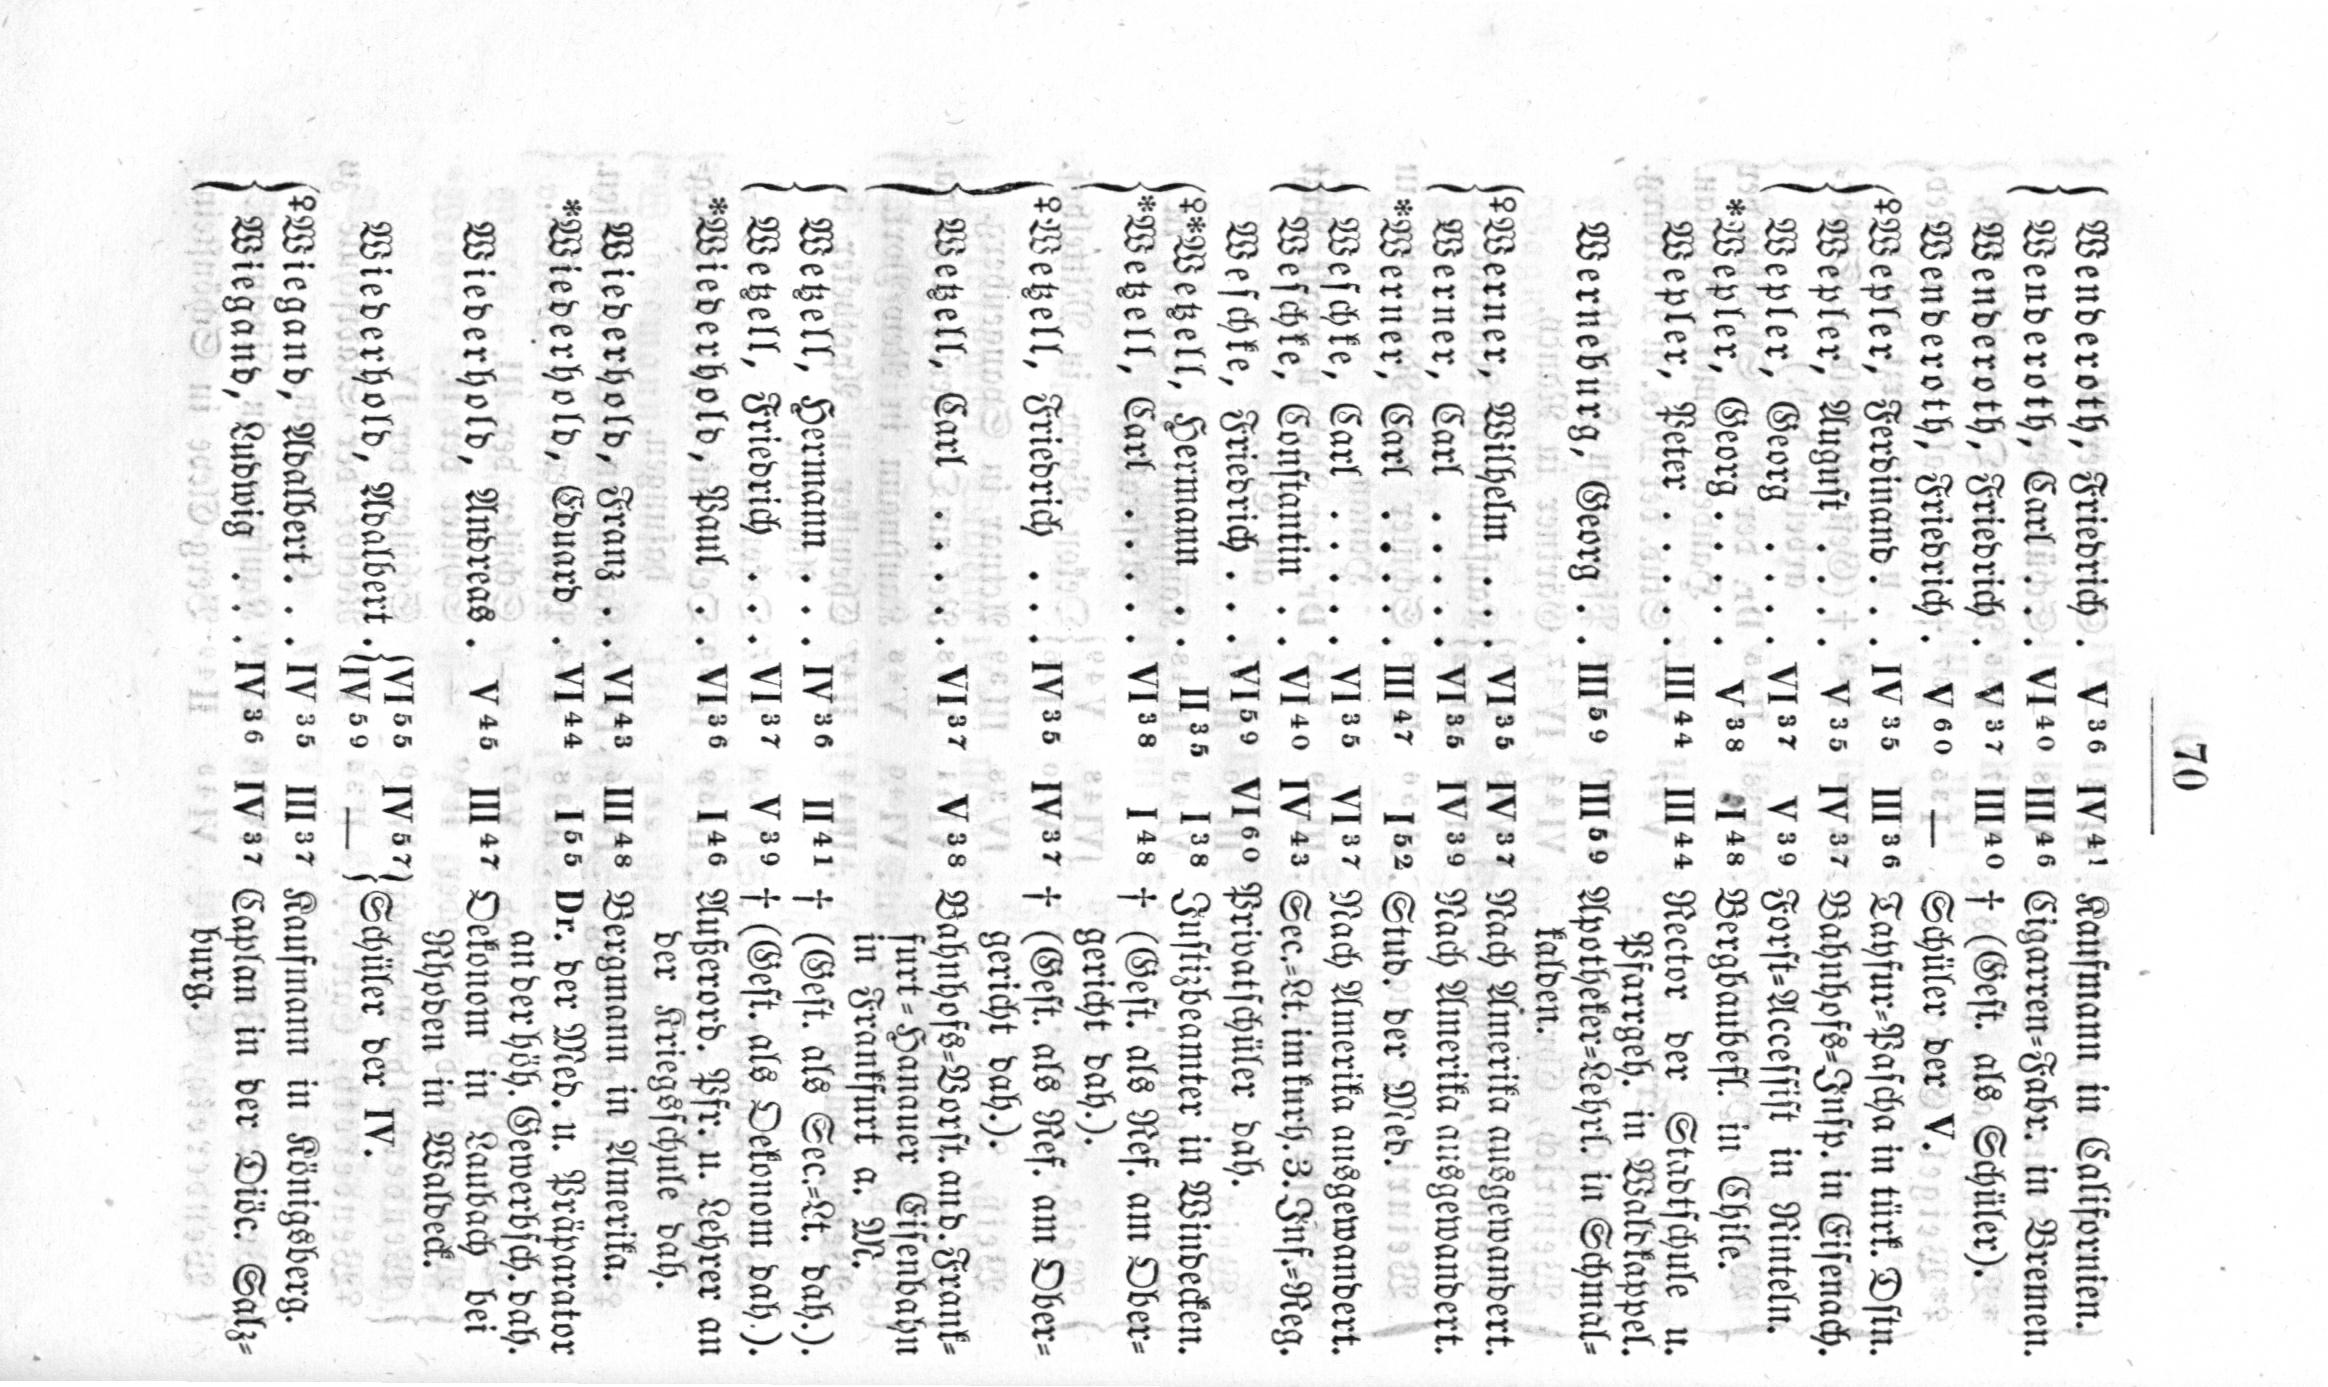 70
Wenderoth, Friedrich . V 36 IV 41 Kaufmann in Californien.
Wenderoth, Carl . . . VI 40 III 46 Cigarren=Fabr. in Bremen.
Wenderoth, Friedrich . V 37 III 40 † (Gest. als Schüler).
Wenderoth, Friedrich . V 60 — Schüler der V.
♀Wepler, Ferdinand . . . IV 35 III 36 Tabsur=Pascha in türk. Dstn.
Wepler, August . . . . V 35 IV 37 Bahnhofs=Insp. in Eisenach.
Wepler, Georg . . . . VI 37 V 39 Forst=Accessist in Rinteln.
*Wepler, Georg . . . . . V 38 I 48 Bergbaubefl. in Chile.
Wepler, Peter . . . . . III 44 III 44 Rector der Stadtschule u.
Pfarrgeh. in Waldkappel.
Werneburg, Georg . . III 59 III 59 Apotheker=Lehrl. in Schmal=
kalden.
♀Werner, Wilhelm . . . VI 35 IV 37 Nach Amerika ausgewandert.
Werner, Carl . . . . . VI 35 IV 39 Nach Amerika ausgewandert.
*Werner, Carl . . . . . III 47 I 52 Stud. der Med.
Weschke, Carl . . . . . VI 35 VI 37 Nach Amerika ausgewandert.
Weschke, Constantin . . VI 40 IV 43 Sec.=Lt. im kurh. 3. Inf.=Reg.
Weschke, Friedrich . . . VI 59 VI 60 Privatschüler dah.
♀*Wetzell, Hermann . . II 35 I 38 Justizbeamter in Windecken.
*Wetzell, Carl . . . . . VI 38 I 48 † (Gest. als Ref. am Ober=
gericht dah.).
♀Wetzell, Friedrich . . . IV 35 IV 37 † (Gest. als Ref. am Ober=
gericht dah.).
Wetzell, Carl . . . . . VI 37 V 38 Bahnhofs=Vorst. and. Frank=
furt=Hanauer Eisenbahn
in Frankfurt a. M.
Wetzell, Hermann . . . IV 36 II 41 † (Gest. als Sec.=Lt. dah.).
Wetzell, Friedrich . . . VI 37 V 39 † (Gest. als Oekonom dah.).
*Wiederhold, Paul . . VI 36 I 46 Außerord. Pfr. u. Lehrer an
der Kriegsschule dah.
Wiederhold, Franz . . VI 43 III 48 Bergmann in Amerika.
*Wiederhold, Eduard . VI 44 I 55 Dr. der Med. u. Präparator
an der höh. Gewerbsch. dah.
Wiederhold, Andreas . V 45 III 47 Oekonom in Laubach bei
Rhoden in Waldeck.
Wiederhold, Adalbert . {VI 55 IV 57} Schüler der IV.
{IV 59 — }
♀Wiegand, Adalbert . . . IV 35 III 37 Kaufmann in Königsberg.
Wiegand, Ludwig . . . IV 36 IV 37 Caplan in der Diöc. Salz=
burg.